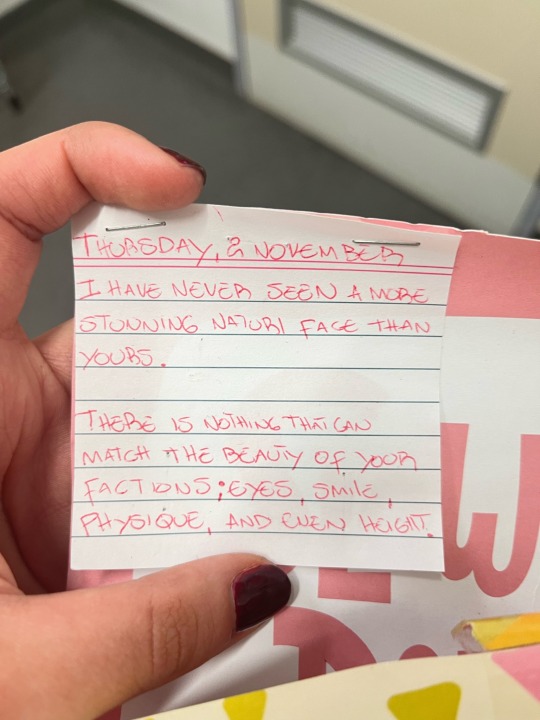 THURSDAY, 2 NOVEMBER
I HAVE NEVER SEEN A MORE
STUNNING NATURL FACE THAN
YOURS.
THERE IS NOTHING THAT CAN
MATCH THE BEAUTY OF YOUR
FACTIONS; EYES, SMILE,
PHYSIQUE, AND EVEN HEIGHT.